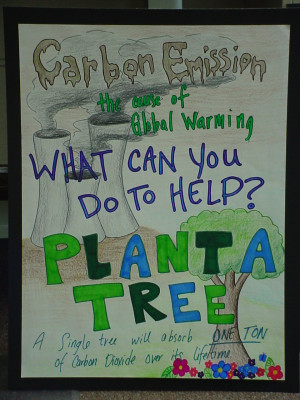 Carbon Emission
the cause of
Global Warming
WHAT CAN YOU
DO TO HELP?
PLANT A
TREE
A Single tree will absorb ONE TON
of Carbon Dioxide over its lifetime.